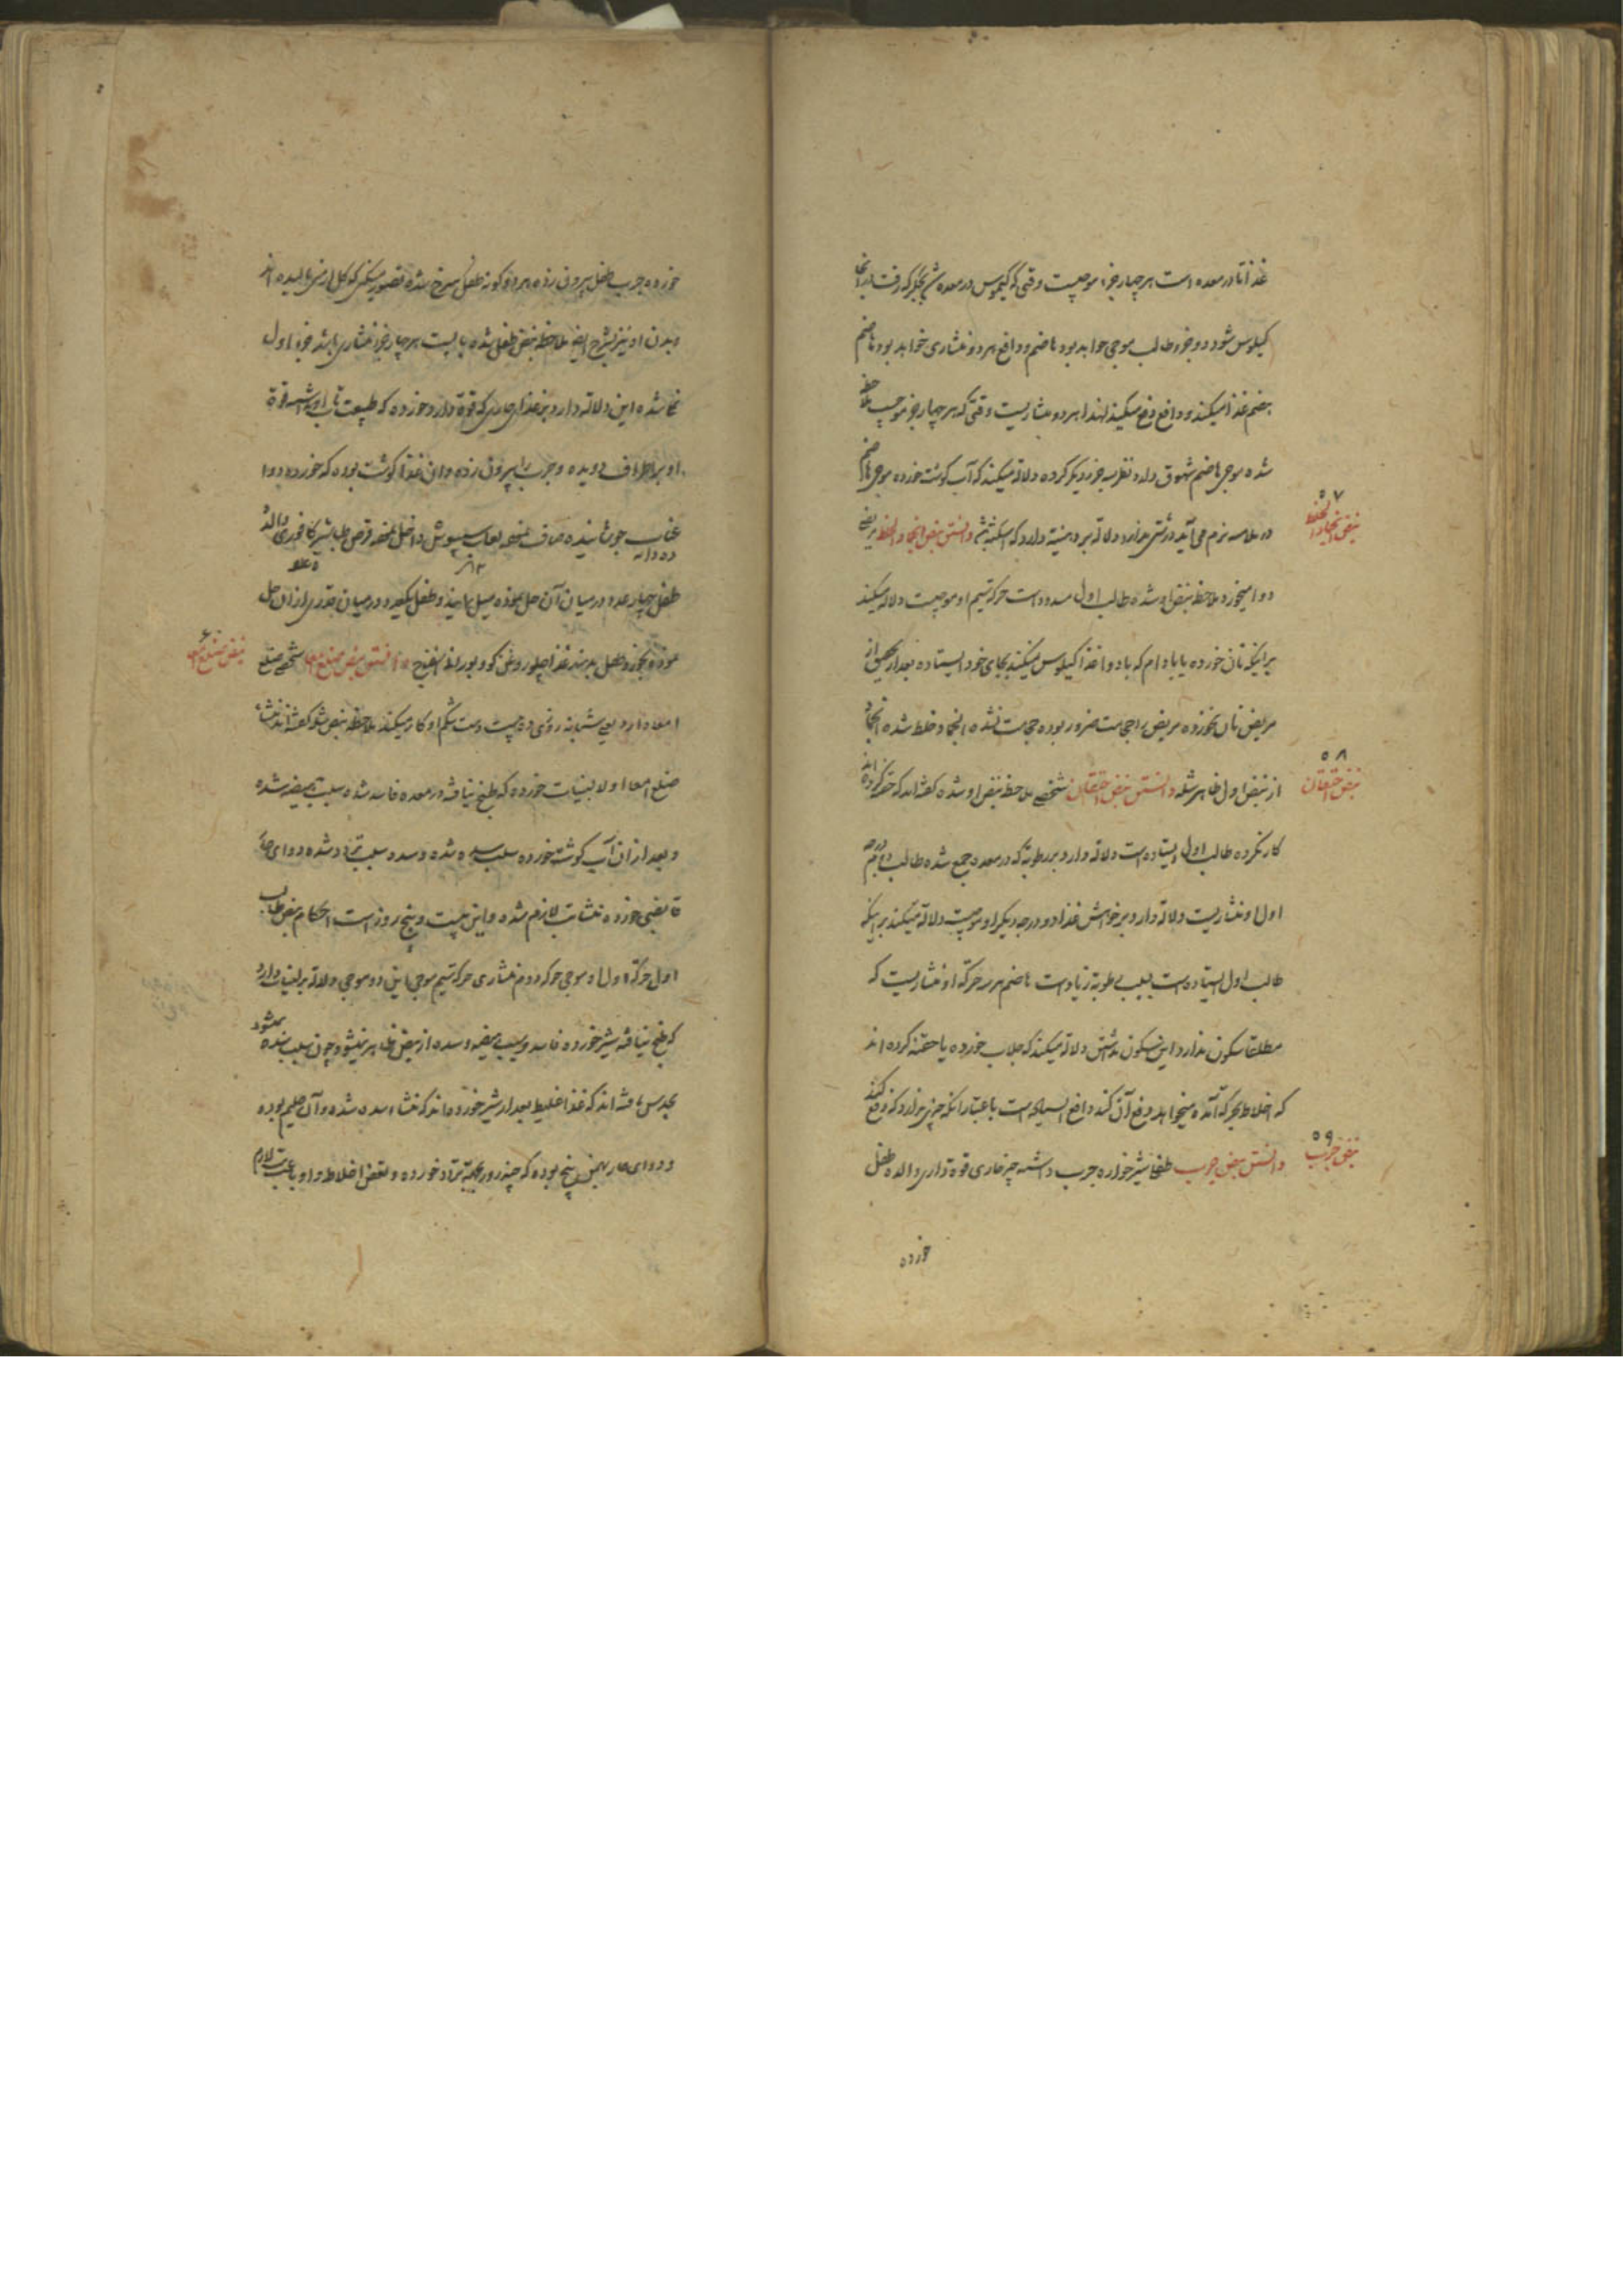 غذا تا در معده است هر چهار جزء موجیست وقتی که کیموس در معده شد بجگر که رفت
کیلوس شود دو جزو طالب موجی خواهد بود هاضم و دافع هر دو منشاری خواهد بود هاضم
هضم غذا میکند و دافع دفع میکند لهذا هر دو منشاریست وقتی که هر چهار جزو موجیست
شده موجی هاضم شهوق دارد نظر بجزو دیگر کرده دلالة میکند که آب گوشت خورده موجی هاضم
در ملامسه نرم می آید درشتی ندارد دلالة بر دهنیة دارد که دانستن نبض انجماد الخلط مریضی
نبض انجماد الخلط ۵۷
دوا میخورد ملاحظه نبض او شده طالب اول مسدود است حرکة سیم او موجیست دلالة میکند
بر اینکه نان خورده یا بادام که با دوا غذا کیلوس میکند بجای خود ایستاده بعد از تحقیق از
مریض نان بخورده مریض را حجامت ضرور بوده حجامت نشده انجماد خلط شده انجماد
از نبض اول ظاهر شده دانستن نبض احتقان شخصی ملاحظه نبض او شده گفته اند که حقنه کرده اند
نبض احتقان ۵۸
کار نکرده طالب اول ایستاده است دلالة دارد بر رطوبة که در معده جمع شده طالب دوم درجه
اول او منشاریست دلالة دارد بر خواهش غذا و درجه دیگر او موجیست دلالة میکند بر اینکه
طالب اول ایستاده است بسبب رطوبة زیاد است هاضم هر سه حرکة او منشاریست که
مطلقا سکون ندارد این سکون نداشتن دلالة میکند که جلاب خورده یا حقنه کرده اند
که اخلاط بحرکة آمده میخواهد دفع آن کند دافع ایستاده است باعتبار آنکه چیزی ندارد که دفع کند
دانستن نبض جرب طفل شیرخواره جرب داشته چیز حاری قوة داری والده طفل
نبض جرب ۵۹
خورده
خورده جرب طفل بیرون زده هر دو گونه طفل سرخ شده تصور میکنی که گل ارمنی مالیده اند
و بدن او نیز بشرح ایضا ملاحظه نبض طفل شده هر چهار جزو منشاری باشد جزء اول
این دلالة دارد بر غذای حاری که قوة دارد خورده که طبیعت تاب او نداشته قوة
او بر اطراف دویده و جرب را بیرون زده و ان غذا گوشت بوده که خورده دوا
عناب جوشانیده صاف نموده لعاب سپوش داخل نموده قرص طباشیر کافوری والده
ده دانه
طفل چهار عدد در میان آن حل نموده میل نمایند و طفل یکعدد در میان قدری از آن حل
نموده بخورد طفل بدهند غذا چلو روغن کدو بورانی اسفناج دانستن نبض ضلع امعا شخصی ضلع
نبض ضلع امعا ۶۰
امعاء دارد یعنی شبانه روزی ده بیست دست شکم او کار میکند ملاحظه نبض شد گفته اند منشاء
ضلع امعا اولا لبنیات خورده که طبخ نیافته در معده فاسد شده سبب هیضه شده
و بعد از ان آب گوشت خورده سبب سده شده و سده سبب تردد شده دوای حار
قابضی خورده تشات لازم شده و این بیست و پنج روز است احکام نبض طالب
اول حرکة اول او موجی حرکه دوم منشاری حرکة سیم موجی این دو موجی دلالة بر لبنیات دارد
که طبخ نیافته شیر خورده فاسد و سبب هیضه و سده از نبض ظاهر نمیشود چون سبب سده میشود
بحدس یافته اند که غذا غلیظ بعد از شیر خورده اند که منشاء سده شده و آن حلیم بوده
و دوای حار بهمن پیچ بوده که چند روز بجهة تردد خورده و بعض اخلاط